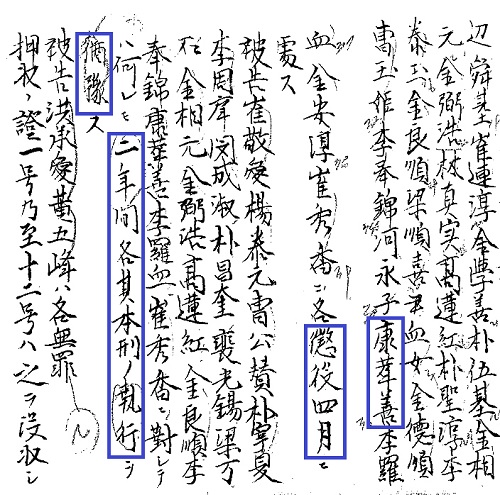 崔連淳金學善朴伍基金相
元金弼浩林真実高蓮紅朴聖淳李
泰玉金良順梁順喜尹血女金德順
曺玉姙李奉錦河永子康善李羅
血金安淳崔秀香ニ各懲役四月ニ
處ス
被告崔敬愛楊泰元曺公賛朴宰夏
李周閔成淑朴昌奎裵光錫梁万
金相元金弼浩高蓮紅金良順李
奉錦康善李羅血崔秀香ニ對シテ
ハ何レモ二年間各其本刑ノ執行ヲ
猶豫ス
被告洪承愛黄五峰ハ各無罪
押収ノ證一号乃至十二号ハ之ヲ没収シ